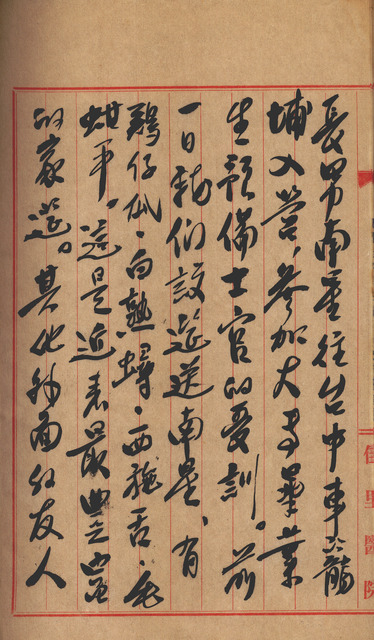 長男南星往台中車籠
埔入營,參加大専畢業
生預備士官的受訓。前
一日我們設筵送南星、有
鷄仔、白熟蟳、西施舌、毛
蚶等。這是近來最豐富
的家筵。其他外面的友人
佳里醫院